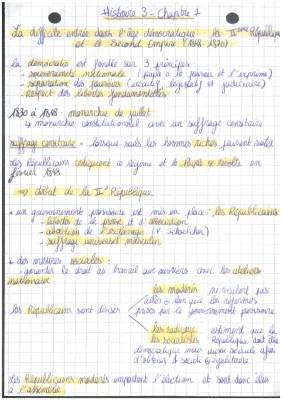 Histoire 3 - Chapitre 1
La difficile entrée dans l'âge démocratique : la IIème République
et le Second Empire (1848-1870)
la démocratie est fondée sur 3 principes
- souveraineté nationale (pays a le pouvoir et l'exprime)
- séparation des pouvoirs (exécutif, législatif et judiciaire)
- respect des libertés fondamentales
1830 à 1848 monarchie de juillet
↳ monarchie constitutionnel avec un suffrage censitaire
suffrage censitaire = lorsque seuls les hommes riches peuvent voter
Les Républicains critiquent ce régime et le Peuple se révolte en
février 1848
⇒ début de la IIe République
• un gouvernement provisoire est mis en place : les Républicains
- libertés de la presse et d'association
- abolition de l'esclavage (V. Schœlcher)
- suffrage universel masculin
• des mesures sociales :
- garantir le droit au travail aux ouvriers avec les ateliers
nationaux
les modérés ne veulent pas
aller + loin que les réformes
prises par le gouvernement provisoire
les Républicains sont divisés
les radicaux estiment que la
les socialistes République doit être
démocratique mais aussi sociale afin
d'obtenir 1 société + égalitaire
Les Républicains modérés remportent l'élection et sont donc élus
à l'assemblée